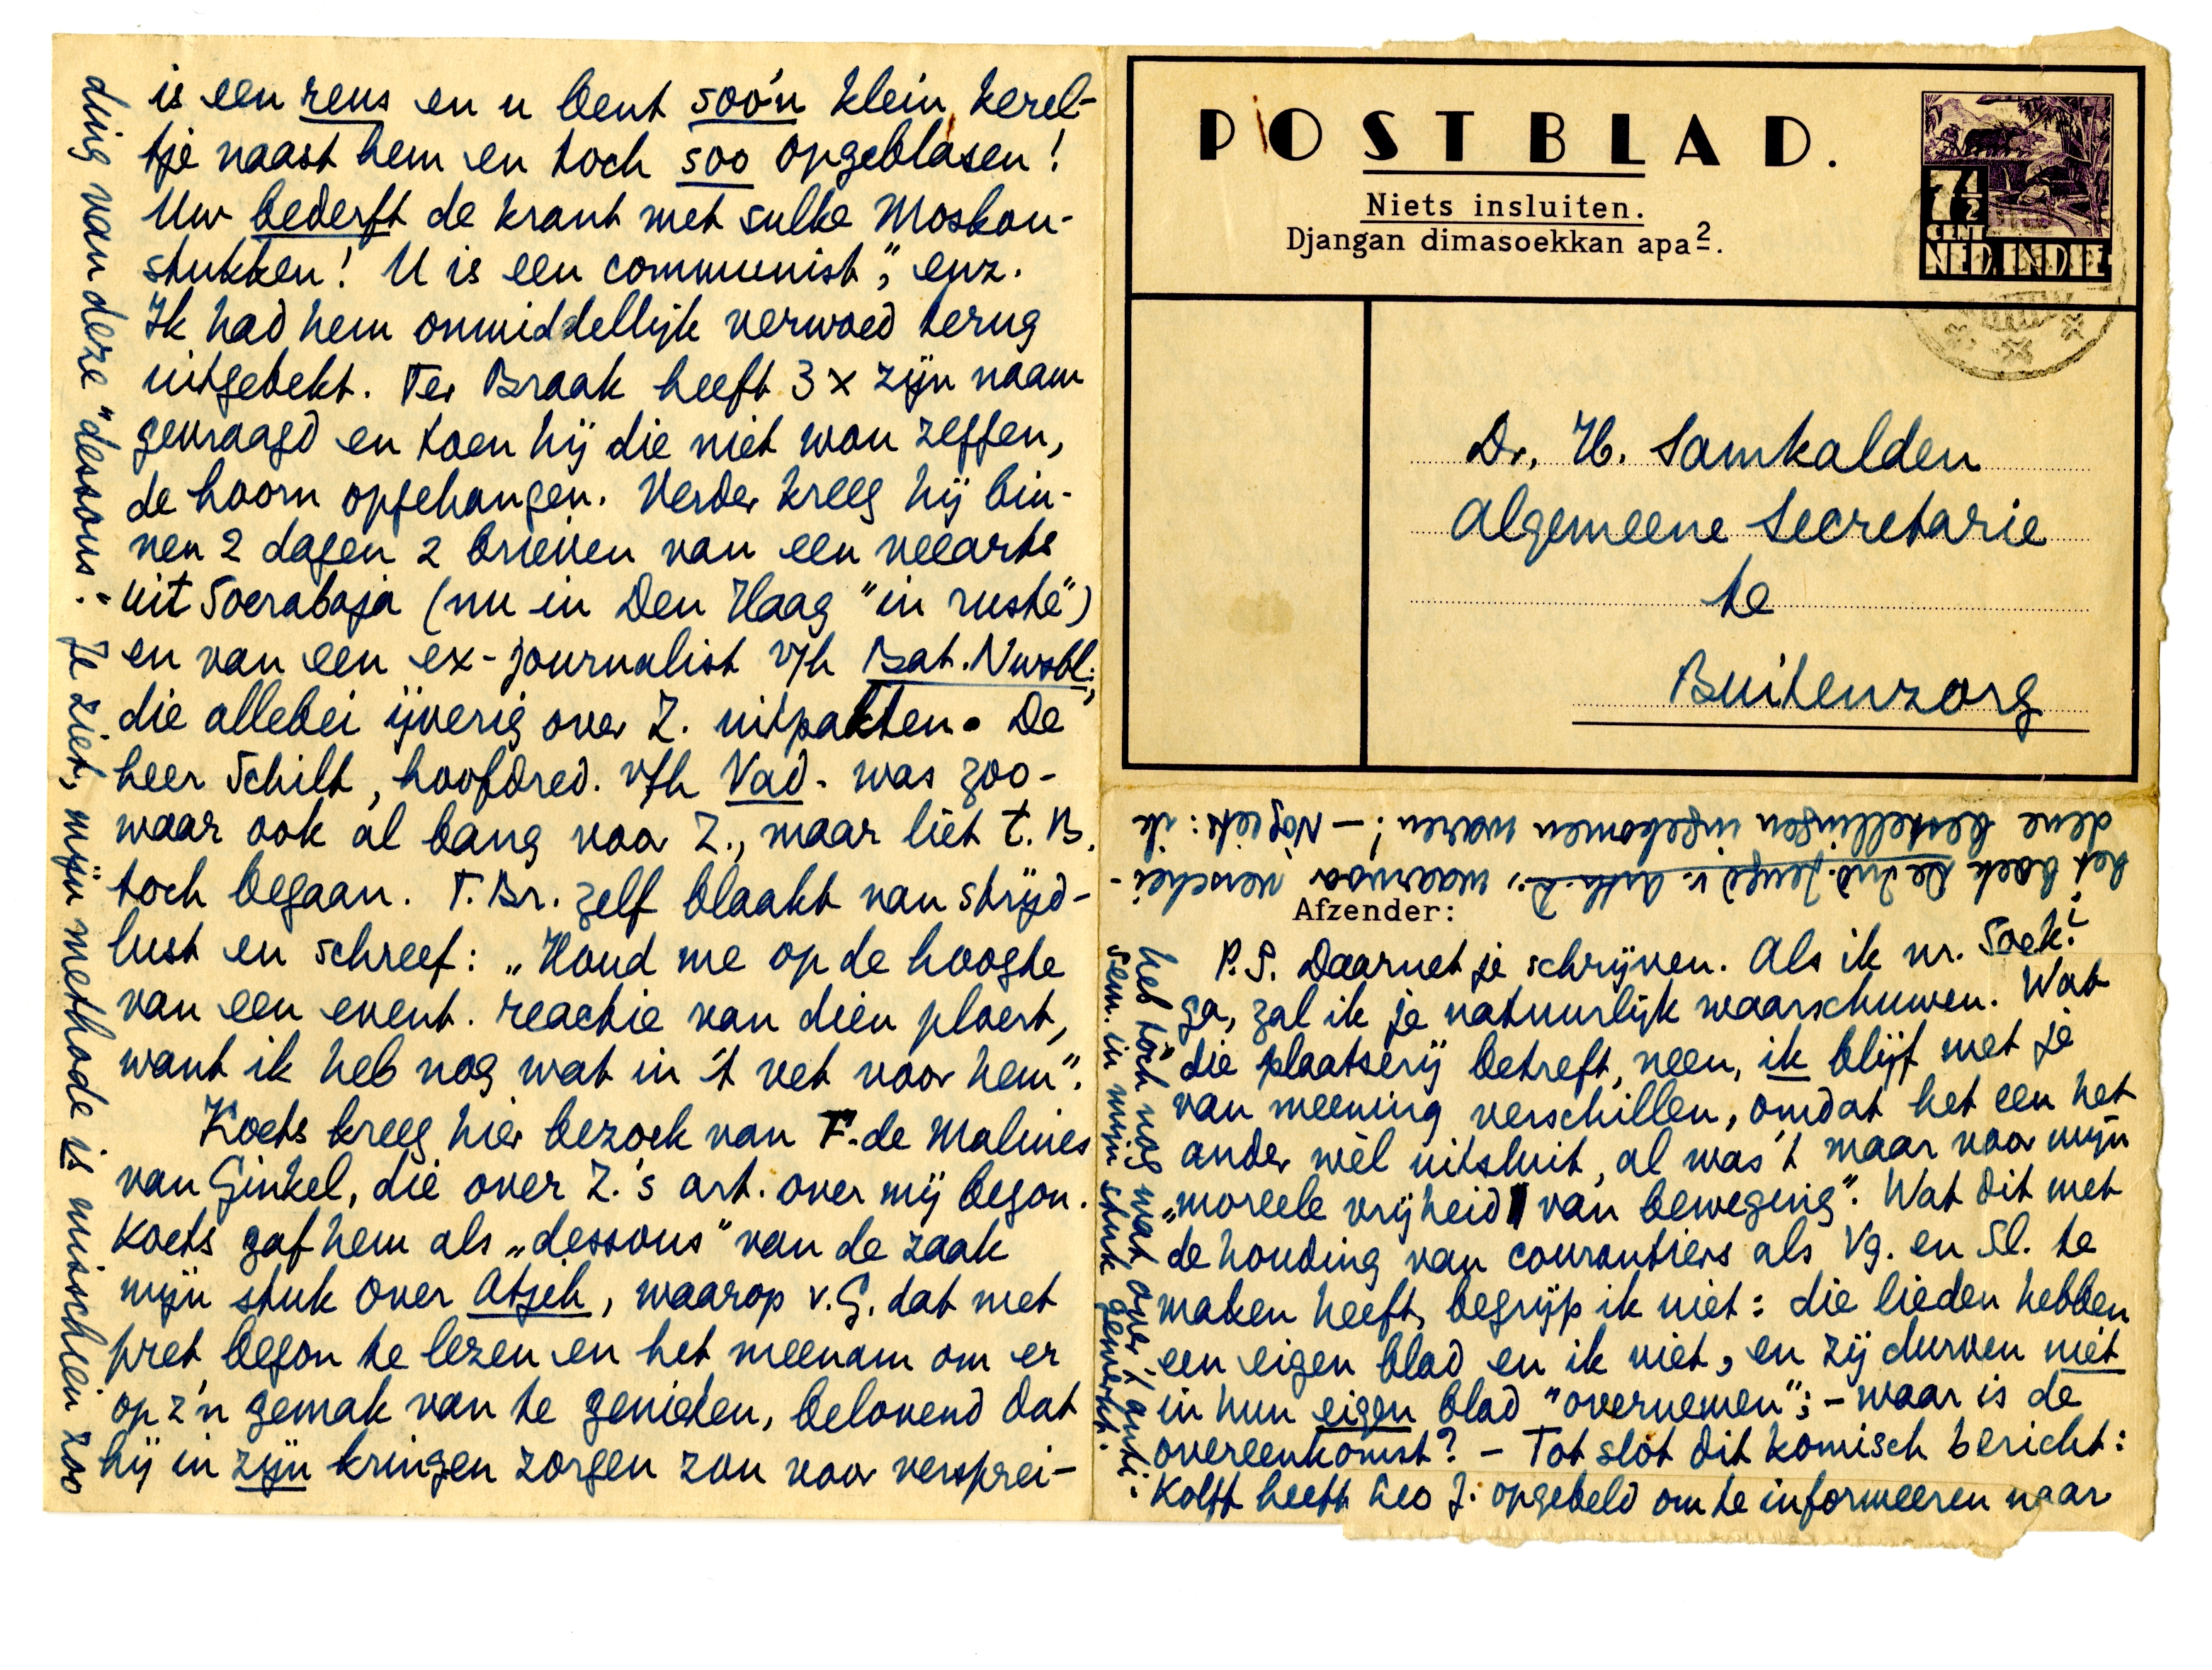 is een reus en u bent soo'n klein kerel-
tje naast hem en toch soo opgeblasen!
Uw bederft de krant met sulke Moskou-
stukken! U is een communist", enz.
Ik had hem onmiddellijk verwoed terug
uitgebekt. Ter Braak heeft 3 x zijn naam
gevraagd en toen hij die niet wou zeggen,
de hoorn opgehangen. Verder kreeg hij bin-
nen 2 dagen 2 brieven van een veearts
uit Soerabaja (nu in Den Haag "in ruste")
en van een ex-journalist v/h Bat. Nwsbl.,
die allebei ijverig over Z. uitpakten. De
heer Schilt, hoofdred. v/h Vad. was zoo-
waar ook al bang voor Z., maar liet t. B.
toch begaan. T. Br. zelf blaakt van strijd-
lust en schreef: „Houd me op de hoogte
van een event. reactie van dien ploert,
want ik heb nog wat in 't vet voor hem".
Koets kreeg hier bezoek van F. de Malines
van Ginkel, die over Z.'s art. over mij begon.
Koets gaf hem als „dessous" van de zaak
mijn stuk over Atjeh, waarop v. G. dat met
pret begon te lezen en het meenam om er
op z'n gemak van te genieten, belovend dat
hij in zijn kringen zorgen zou voor versprei-
ding van deze "dessous". Je ziet, mijn methode is misschien zoo
POSTBLAD.
Niets insluiten.
Djangan dimasoekkan apa2.
7½
CENT
NED.INDIE
Dr. H. Samkalden
Algemeene Secretarie
te
Buitenzorg
Afzender:
P.S. Daarnet je schrijven. Als ik nr. Soek.
ga, zal ik je natuurlijk waarschuwen. Wat
die plaatserij betreft, neen, ik blijf met je
van meening verschillen, omdat het een het
ander wèl uitsluit, al was 't maar voor mijn
„moreele vrijheid van beweging". Wat dit met
de houding van courantiers als Vg. en Sl. te
maken heeft, begrijp ik niet: die lieden hebben
een eigen blad en ik niet, en zij durven niet
in hun eigen blad "overnemen"; - waar is de
overeenkomst? - Tot slot dit komisch bericht:
Kolff heeft Leo J. opgebeld om te informeeren naar
het boek De Ind. Jeugd v. Arth. D., waarvoor verschei-
dene bestellingen ingekomen waren! - Nog iets: ik
heb tòch nog wat over 't anti-
sem. in mijn stuk gewerkt.